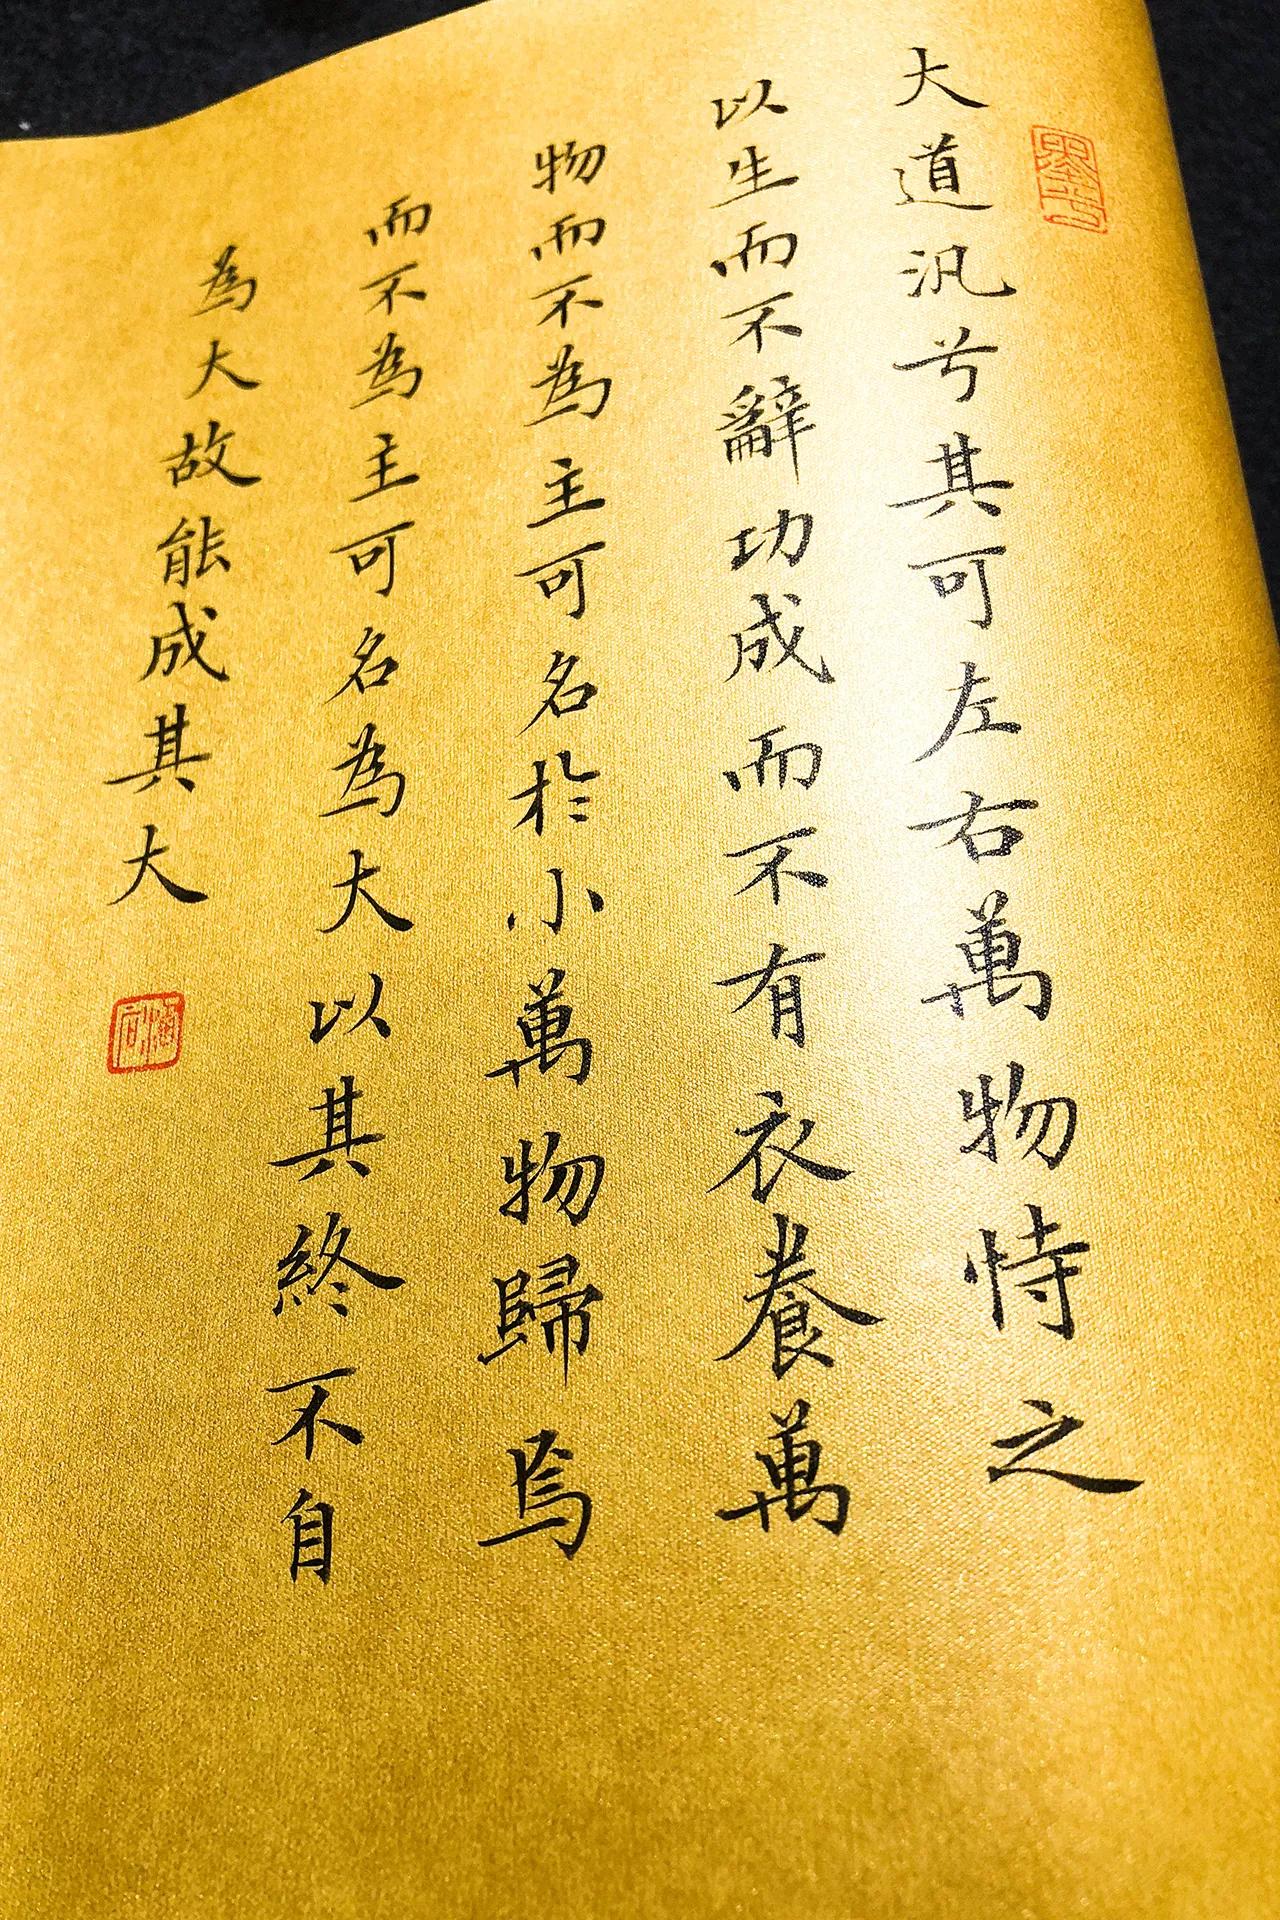 大道汎兮其可左右萬物恃之
以生而不辭功成而不有衣養萬
物而不為主可名於小萬物歸焉
而不為主可名為大以其終不自
為大故能成其大